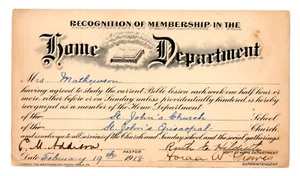 RECOGNITION OF MEMBERSHIP IN THE
Home Department
Mrs. Mathewson
having agreed to study the current Bible lesson each week one half hour or
more, either before or on Sunday unless providentially hindered is hereby
recognized as a member of the Home Department
of the St John's Church School
of St John's Episcopal Church,
and is welcome to all services of the Church and Sunday School and the social gatherings
C. M. Addison
PASTOR
Ruth E.
OF HOME DEPARTMENT
Date February 19th 1918
Horace W.
SUPERINTENDENT